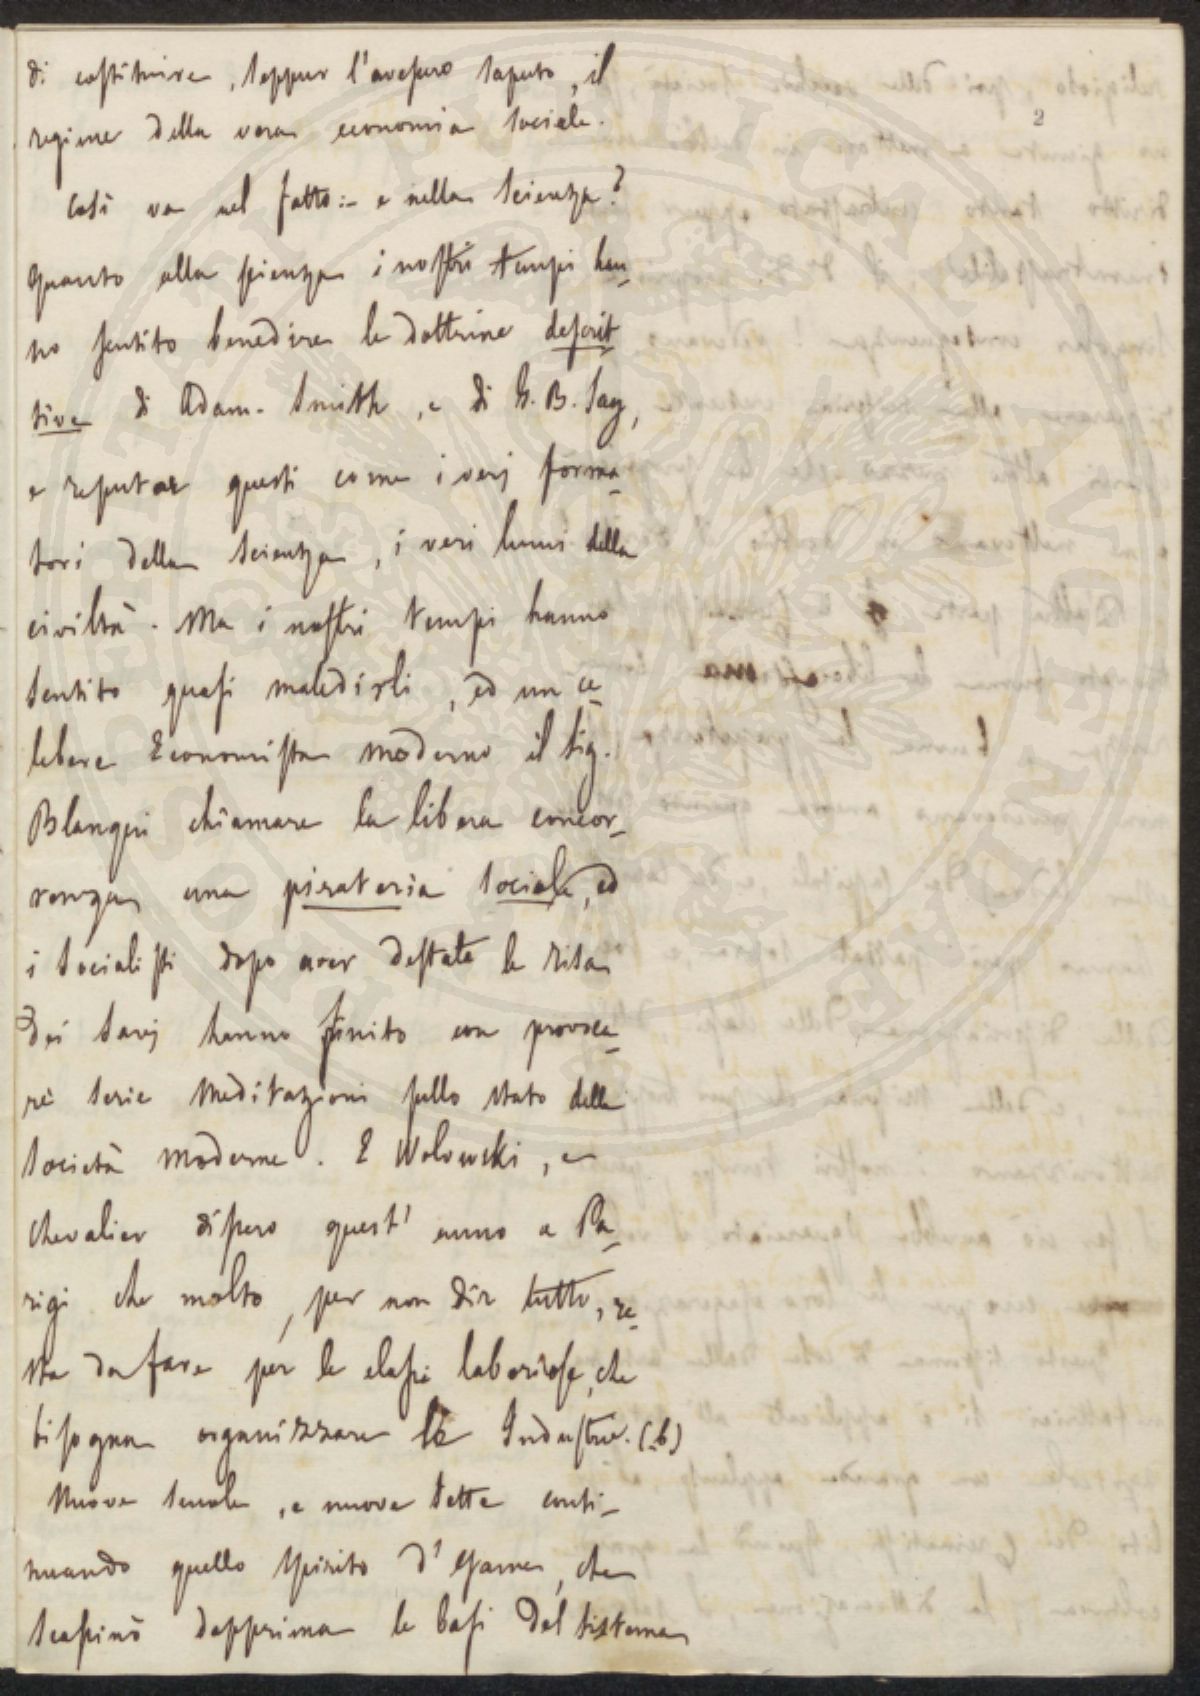 2
di costituire, seppur l'avesser saputo, il
regime della vera economia sociale.
Così va nel fatto:- e nella scienza?
Quanto alla scienza i nostri tempi han-
no sentito benedire le dottrine descrit-
tive di Adam. Smith, e di G. B. Say,
e reputar questi come i veri forma-
tori della scienza, i veri lumi della
civiltà. Ma i nostri tempi hanno
sentito quasi maledirli, ed un ce-
lebere Economista moderno il sig.
Blanqui chiamare la libera concor-
renza una pirateria sociale, ed
i socialisti dopo aver destate le risa
dei savj hanno finito con provoca-
re serie meditazioni sullo stato delle
società moderne. E Wolowski, e
Chevalier dissero quest' anno a Pa-
rigi che molto, per non dir tutto, re-
sta da fare per le classi laboriose, che
bisogna organizzare le Industrie. (b)
Nuove scuole, e nuove sette conti-
nuando quello spirito d' esame, che
scassinò dapprima le basi del sistema
PROSPERITATI PUBLICAE AUGENDAE